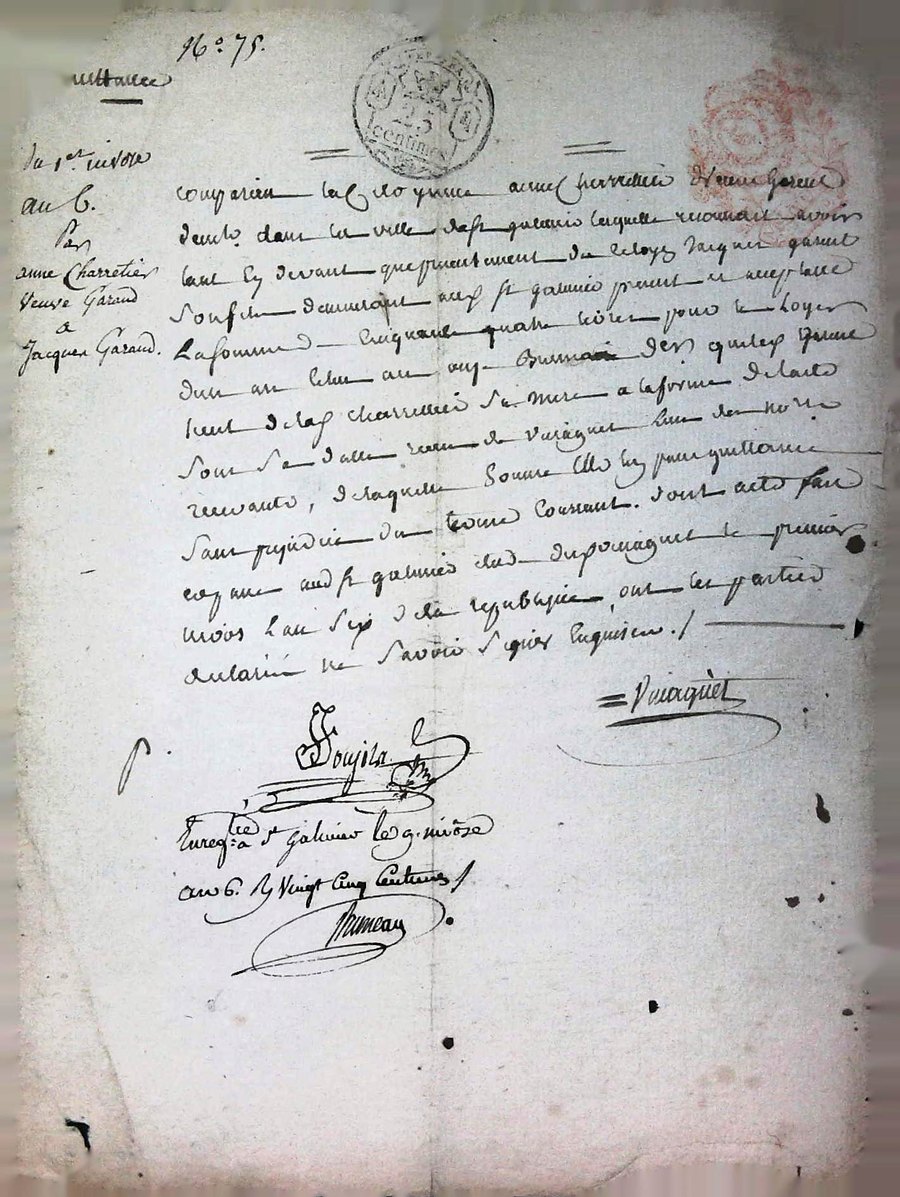 N.° 75.
quittance
du 1.er nivose
an 6.
Par
anne Charretier
veuve Garaud
a
Jacques Garaud.
25
centimes
Comparâu la citoyenne anne Charretier veuve Garaud
demte. dans la ville de st galmier laquelle reconnait avoir
tant cy devant que presentement du citoyen Jacques garaud
son fils demeurant aud. st galmier present et acceptant
la somme de Cinquante quatre livres pour le loyer
d'un an échu au onze Brumaire der
de la Charretier sa mere a la forme de l'acte
sous sa datte recu de Viraguet l'un des notres
recevants, de laquelle somme elle le quittance
sans prejudice du terme Courrant. dont acte fait
aud. st galmier étude dud. Viraguet le premier
nivos l'an Six de la republique, ont les parties
declaré ne savoir signer Enquises ./
Viraguet
P.
Enregtré. a st galmier le 9. nivôse
an 6. Vingt Cinq Centimes /
Bruneau